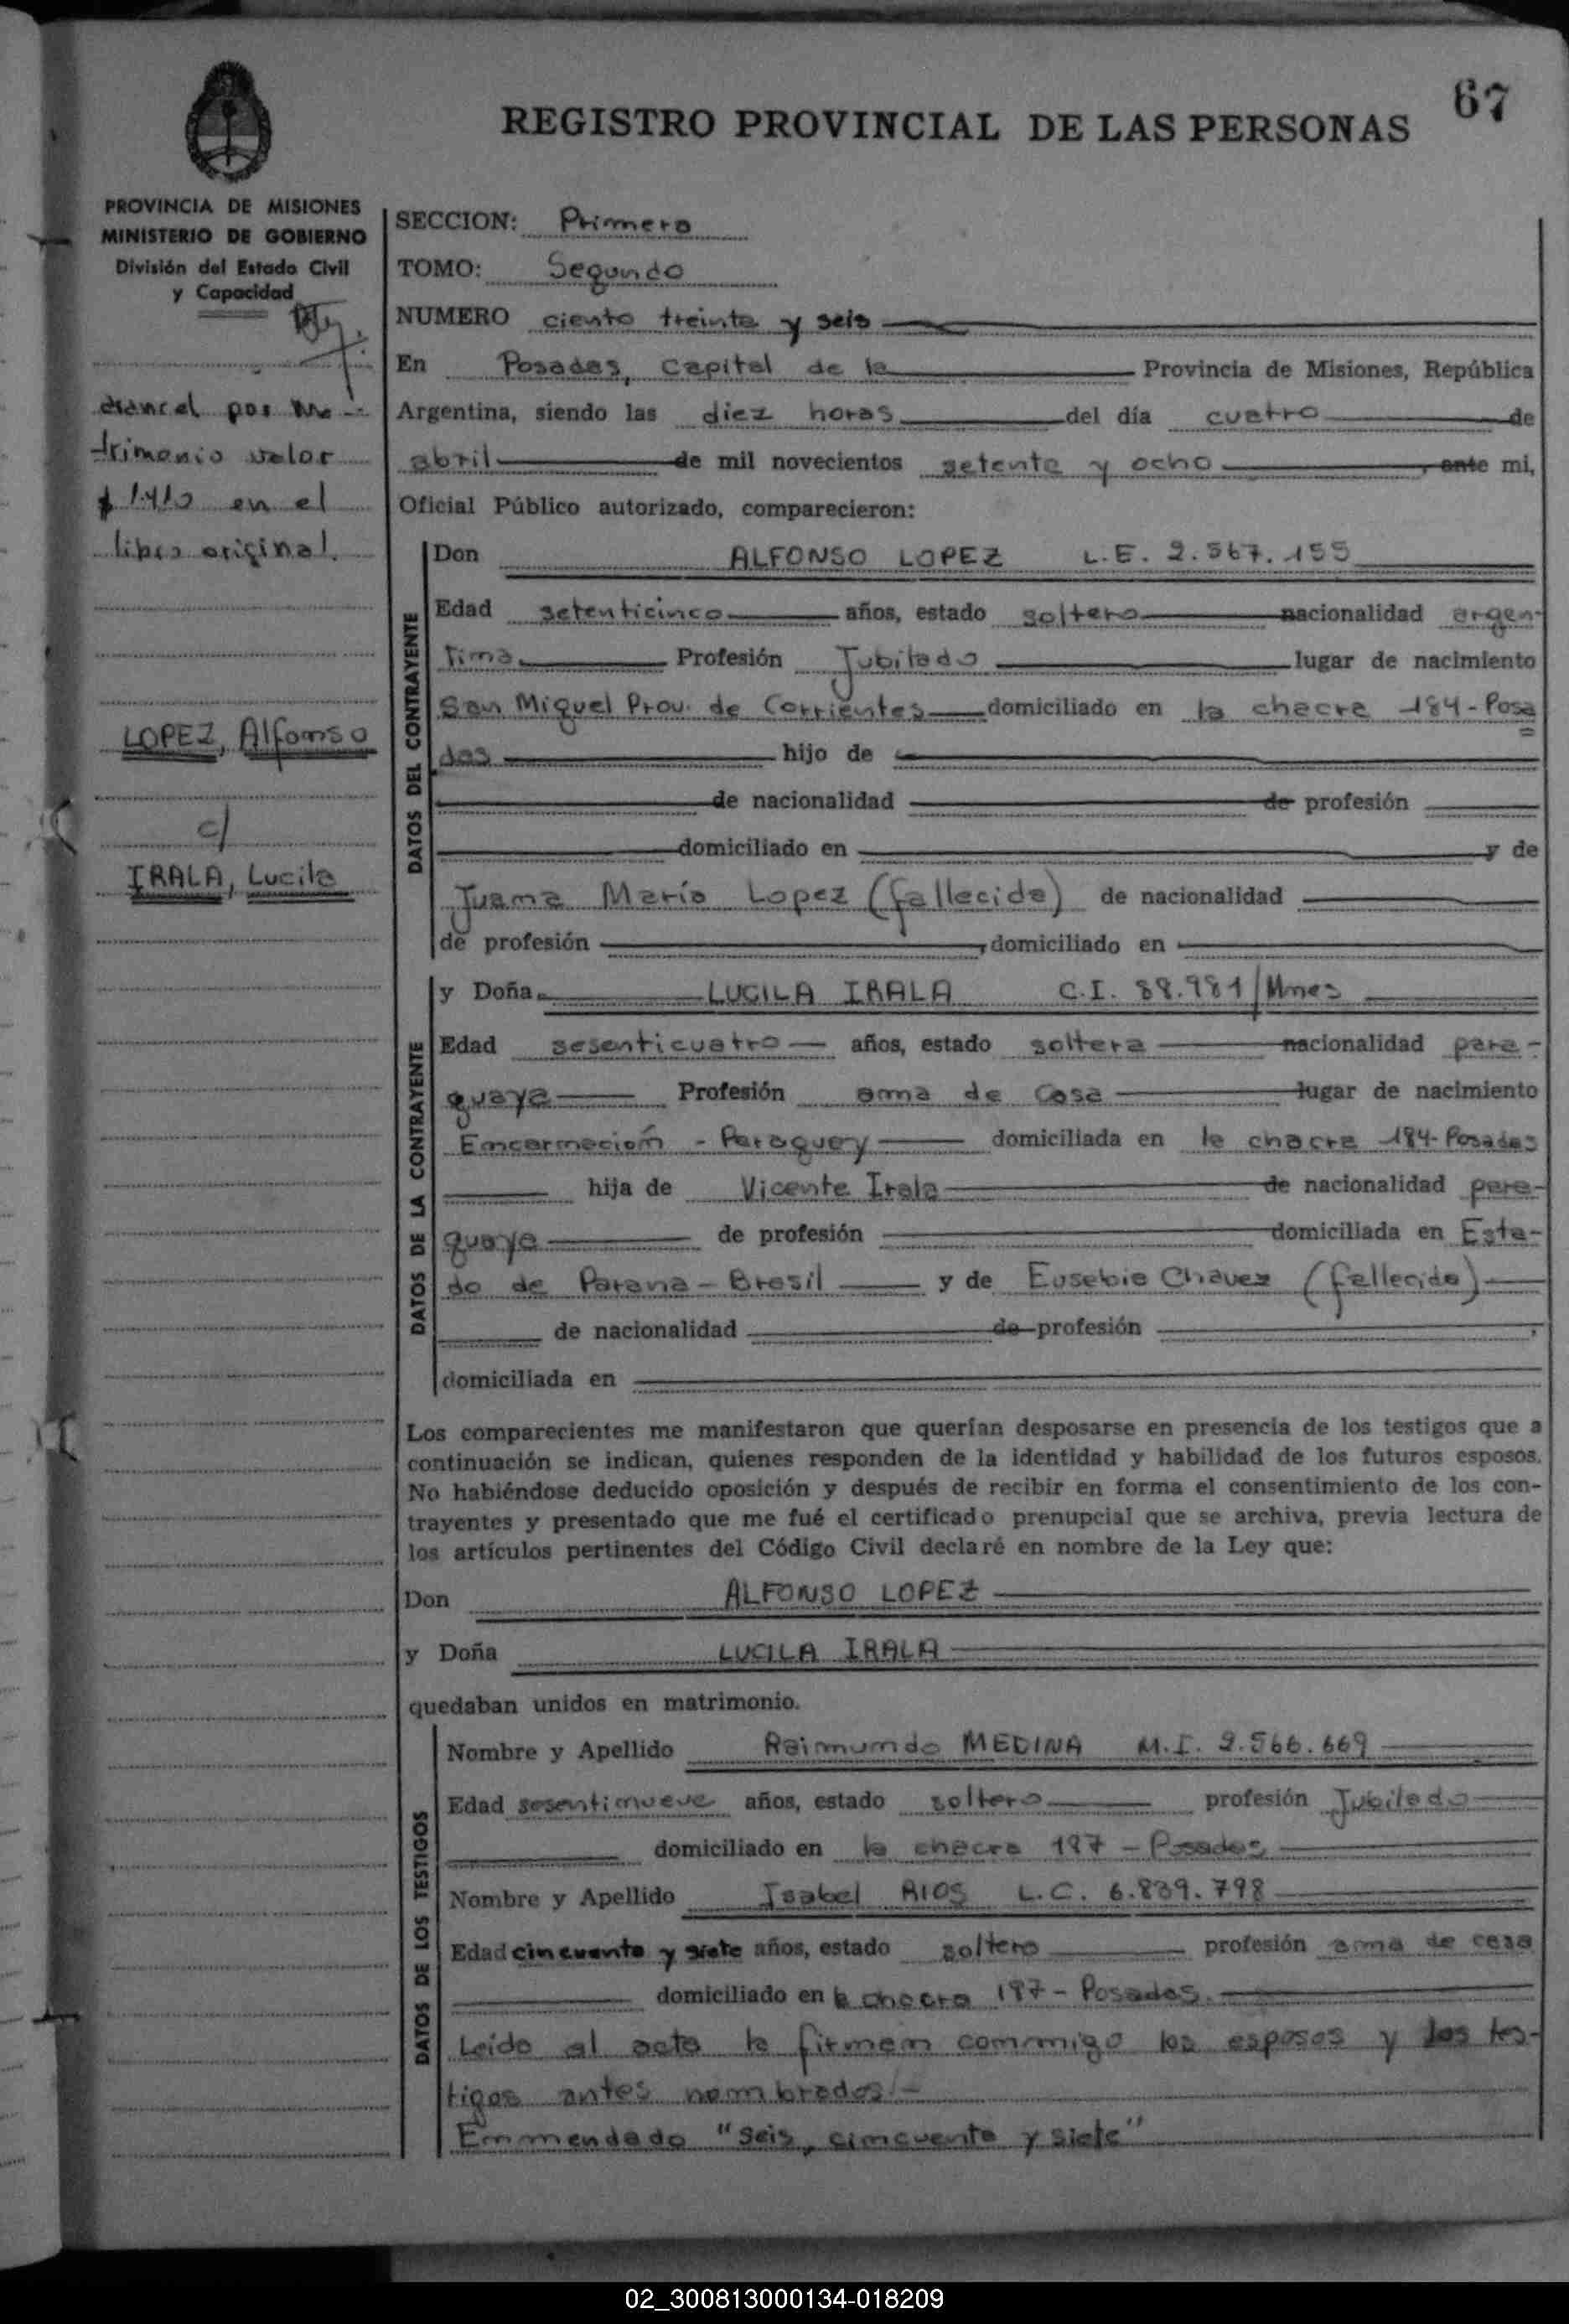 67
REGISTRO PROVINCIAL DE LAS PERSONAS
PROVINCIA DE MISIONES
MINISTERIO DE GOBIERNO
División del Estado Civil
y Capacidad
arancel por ma-
trimonio valor
$ 1.410 en el
libro original.
LOPEZ, Alfonso
c/
IRALA, Lucila
SECCION: Primera
TOMO: Segundo
NUMERO ciento treinta y seis
En Posadas, Capital de la Provincia de Misiones, República
Argentina, siendo las diez horas del día cuatro de
abril de mil novecientos setenta y ocho, ante mi,
Oficial Público autorizado, comparecieron:
DATOS DEL CONTRAYENTE
Don ALFONSO LOPEZ L.E. 2.567.155
Edad setenticinco años, estado soltero nacionalidad argen-
tina Profesión Jubilado lugar de nacimiento
San Miguel Prov. de Corrientes domiciliado en la chacra 184-Posa
das hijo de
de nacionalidad de profesión
domiciliado en y de
Juana María Lopez (fallecida) de nacionalidad
de profesión , domiciliado en
DATOS DE LA CONTRAYENTE
y Doña LUCILA IRALA C.I. 88.981/Mnes
Edad sesenticuatro años, estado soltera nacionalidad para-
guaya Profesión ama de casa lugar de nacimiento
Encarnación - Paraguay domiciliada en la chacra 184-Posadas
hija de Vicente Irala de nacionalidad para-
guaya de profesión domiciliada en Esta-
do de Parana - Brasil y de Eusebia Chavez (fallecida)
de nacionalidad de profesión ,
domiciliada en
Los comparecientes me manifestaron que querían desposarse en presencia de los testigos que a
continuación se indican, quienes responden de la identidad y habilidad de los futuros esposos.
No habiéndose deducido oposición y después de recibir en forma el consentimiento de los con-
trayentes y presentado que me fué el certificado prenupcial que se archiva, previa lectura de
los artículos pertinentes del Código Civil declaré en nombre de la Ley que:
Don ALFONSO LOPEZ
y Doña LUCILA IRALA
quedaban unidos en matrimonio.
DATOS DE LOS TESTIGOS
Nombre y Apellido Raimundo MEDINA M.I. 2.566.669
Edad sesentinueve años, estado soltero profesión Jubilado
domiciliado en la chacra 197 - Posadas
Nombre y Apellido Isabel RIOS L.C. 6.839.798
Edad cincuenta y siete años, estado soltera profesión ama de casa
domiciliado en la chacra 197 - Posadas.
Leído el acta la firman conmigo los esposos y los tes-
tigos antes nombrados.-
Enmendado "seis, cincuenta y siete"
02_300813000134-018209